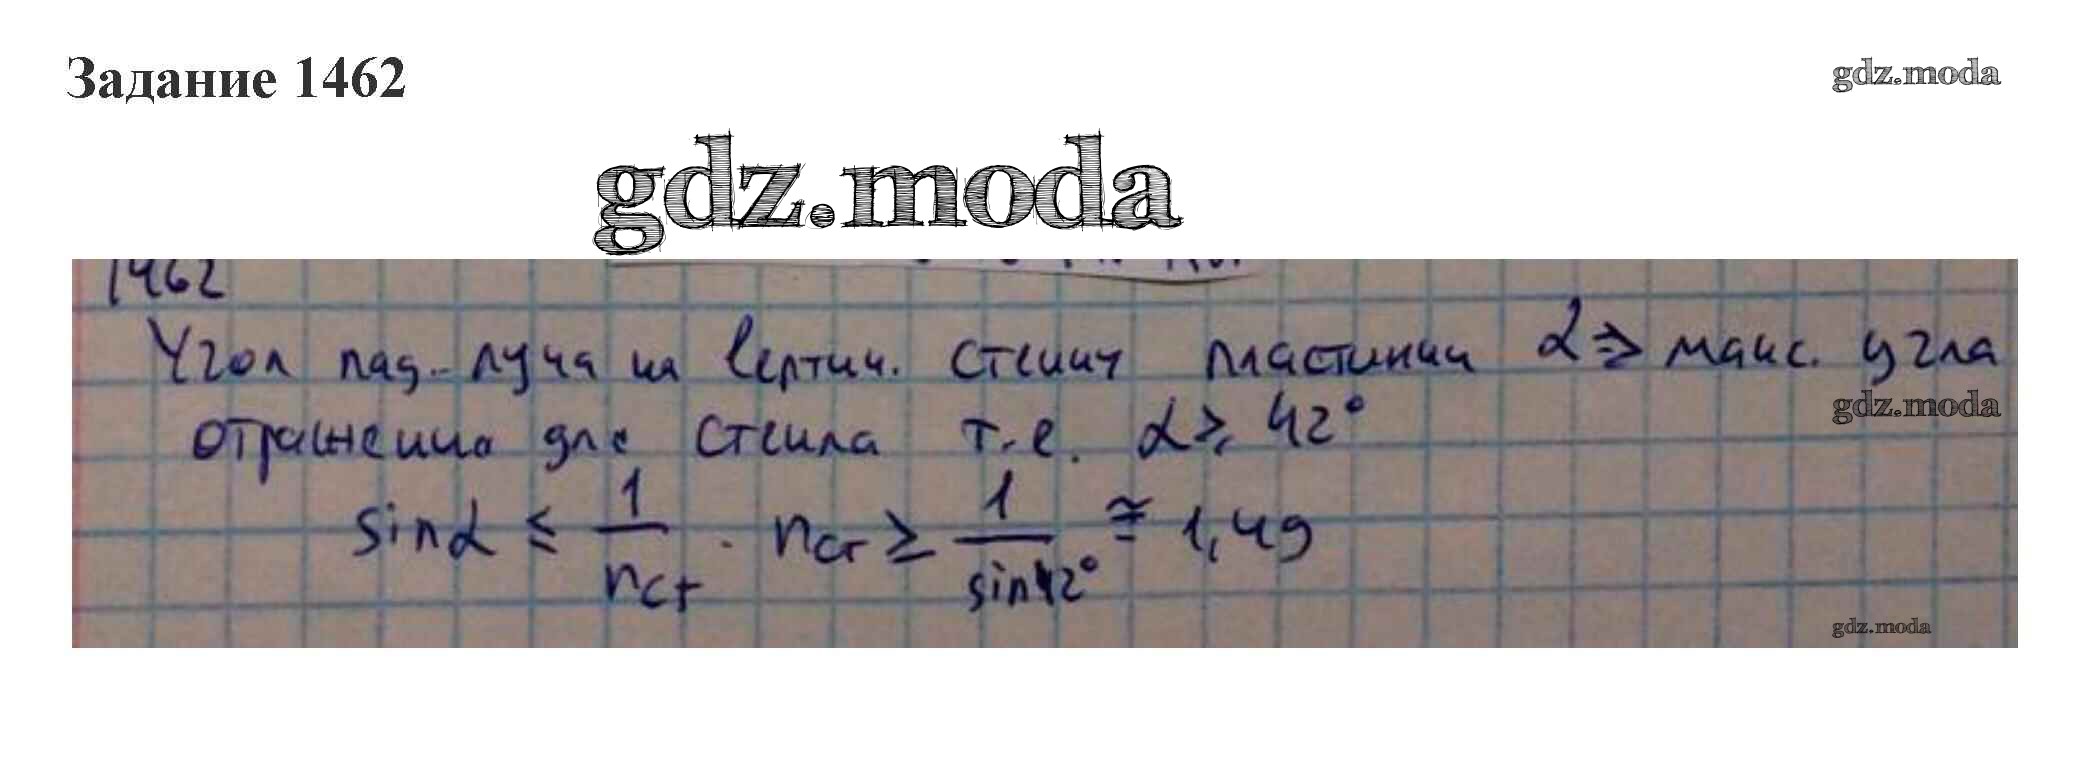 Задание 1462
gdz.moda
gdz.moda
1462
Угол пад. луча на вертик. стенку пластинки α ⩾ макс. угла
gdz.moda
отражения для стекла т.е. α ⩾ 42°
sinα ≤ 1/nст . nст ≥ 1/sin42° ≅ 1,49
gdz.moda